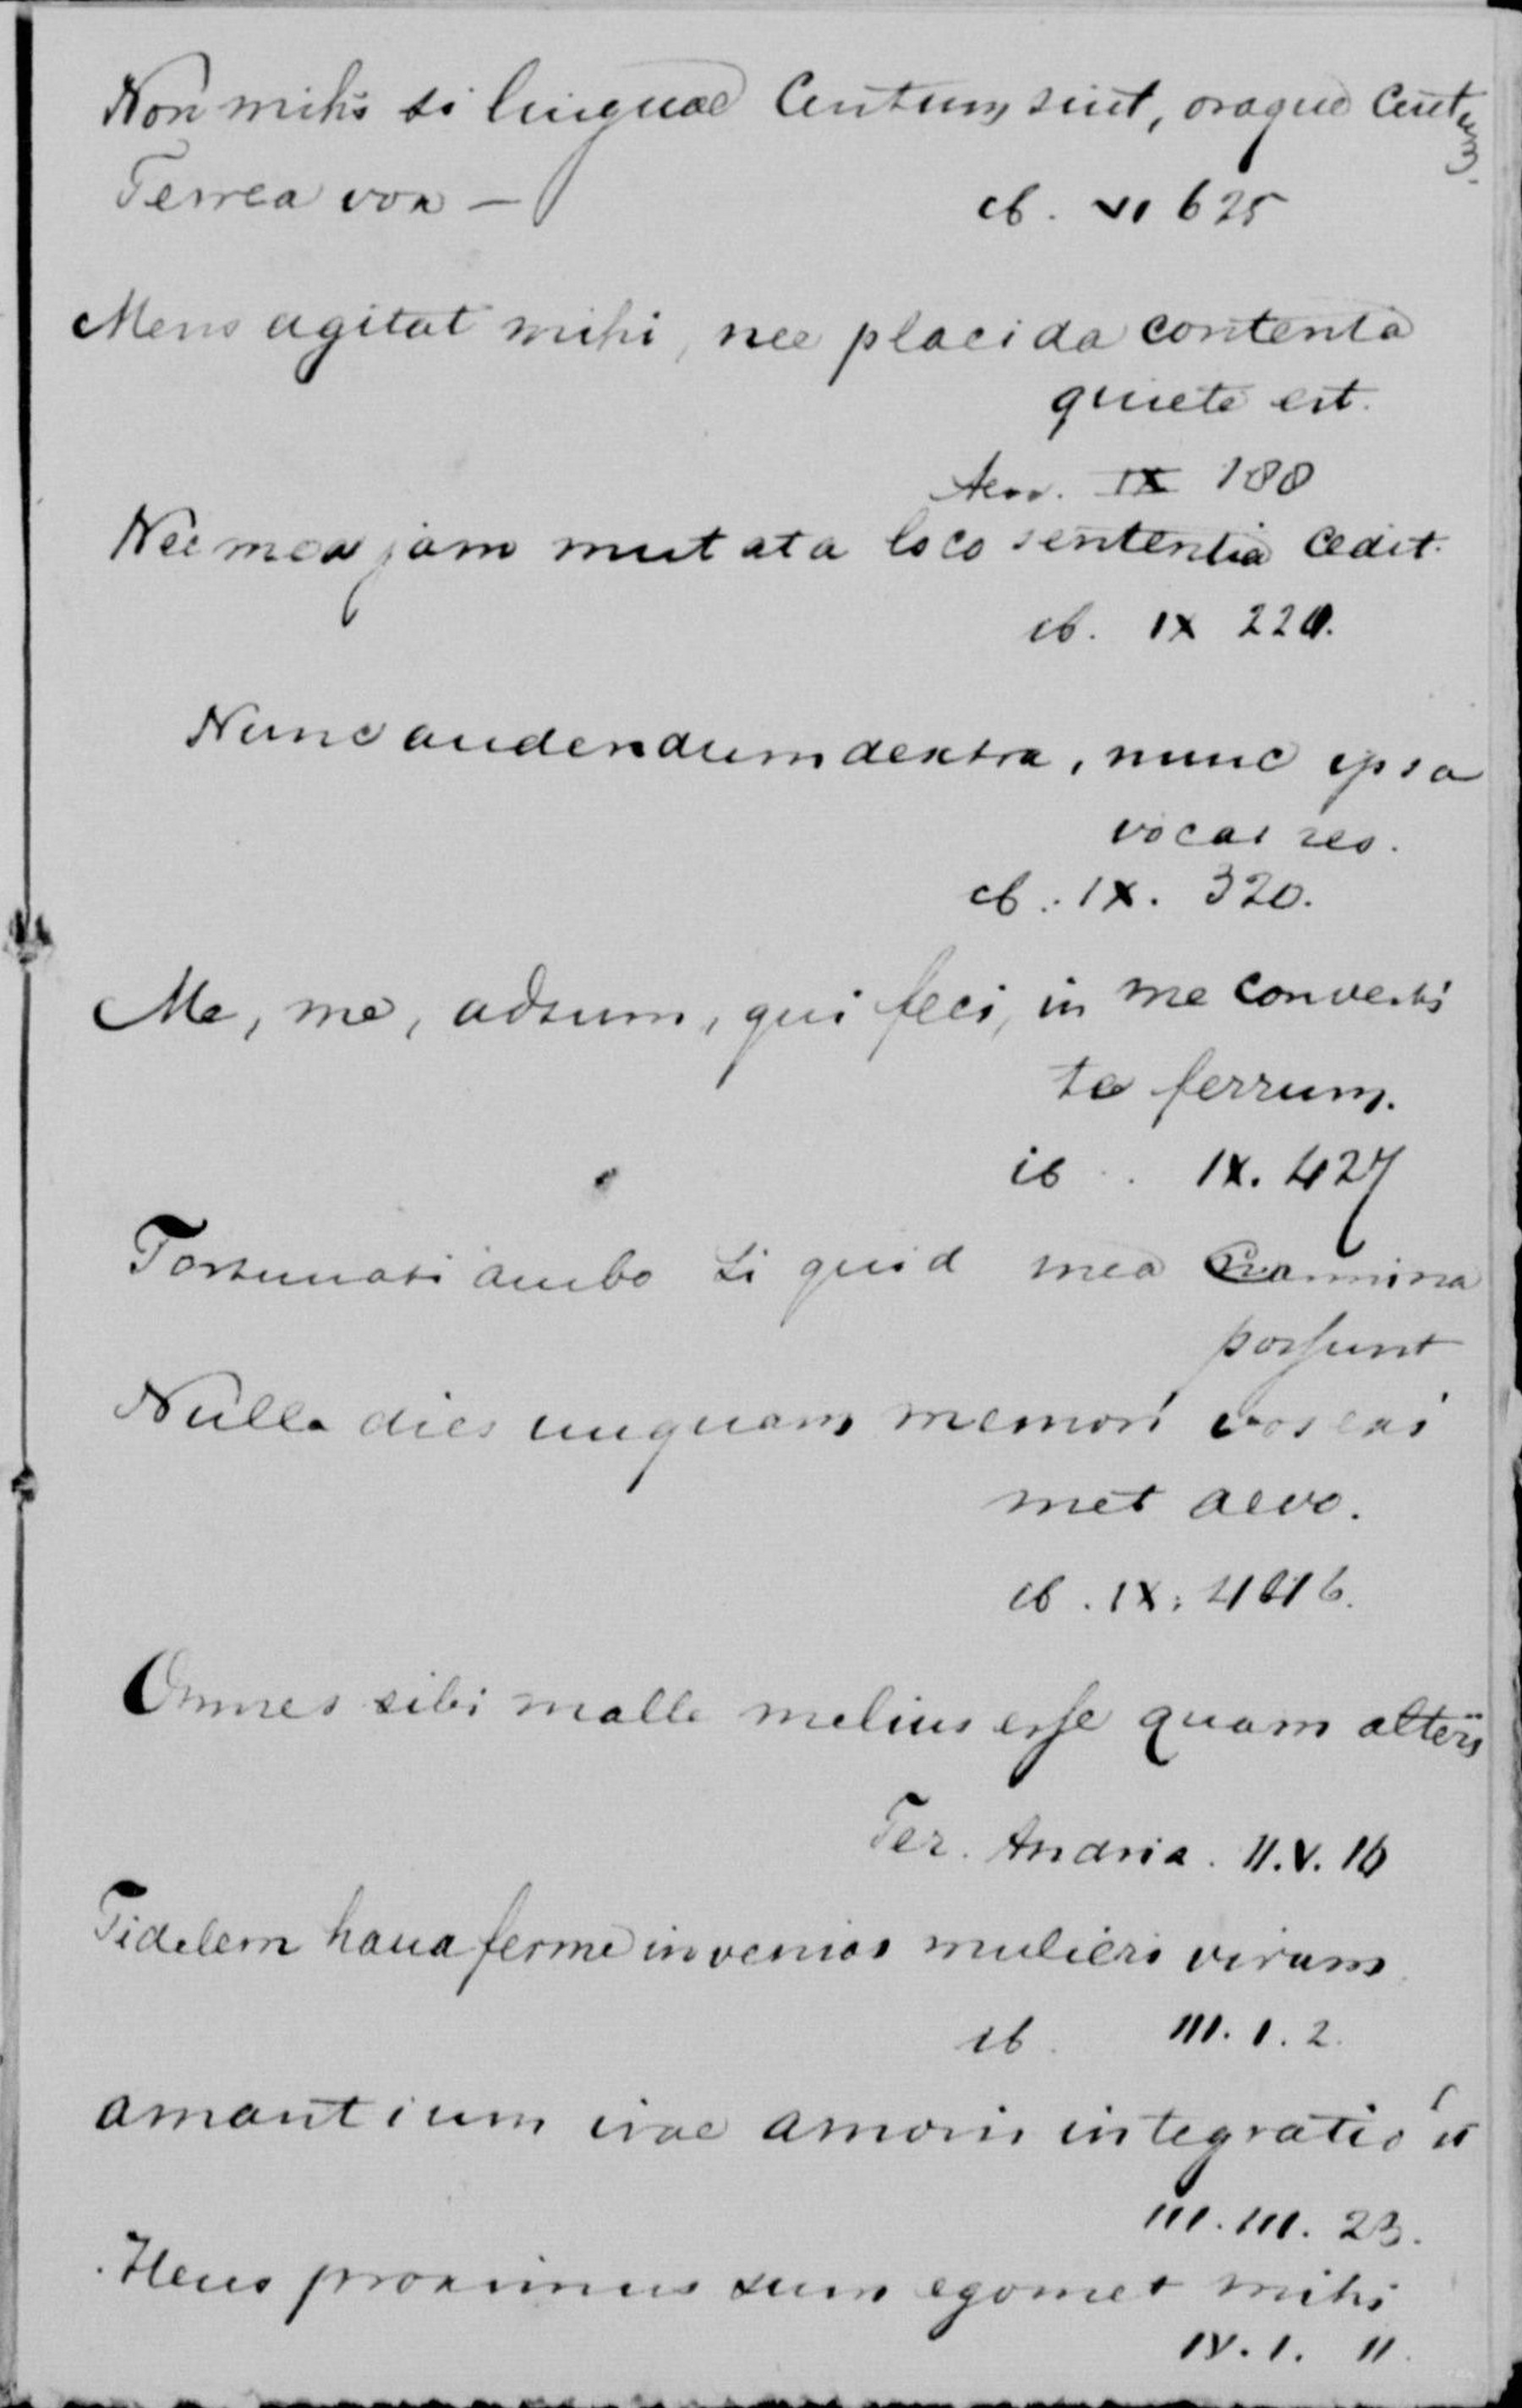 Non mihi si linguae Centum sint, oraque Centum.
Ferrea vox —
ib. VI 625
Mens agitat mihi, nec placida contenta
quiete est.
Aen. IX 188
Nec mea jam mutata loco sententia cedit.
ib. IX 220.
Nunc audendum dextra, nunc ipsa
vocat res.
ib. IX. 320.
Me, me, adsum, qui feci, in me converti
te ferrum.
ib. IX. 427
Fortunati ambo si quid mea Carmina
possunt
Nulla dies unquam memori vos exi
met aevo.
ib. IX. 446.
Omnes sibi malle melius esse quam alteri
Ter. Andria. II. V. 16
Fidelem haud ferme invenias mulieri virum
ib. III. 1. 2.
amantium irae amoris integratio est
III. III. 23.
Heus proximus sum egomet mihi
IV. 1. 11.